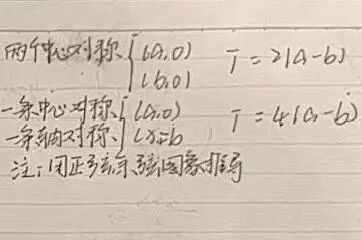 两个中心对称{(a,0) T=2|a-b|
(b,0)
一条中心对称{(a,0) T=4|a-b|
一条轴对称{x=b
注:用正弦余弦图象推导